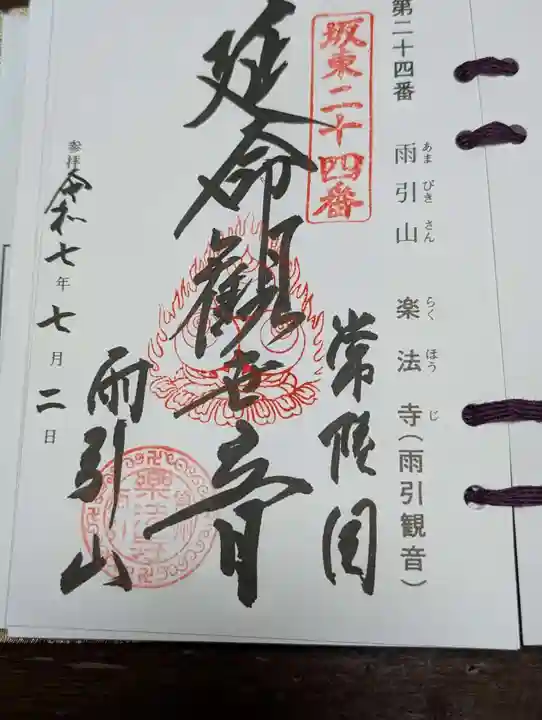 第二十四番 雨引山 楽法寺(雨引観音)
あまびきさん らくほうじ
坂東二十四番
常陸国
延命観世音
雨引山
参拝 令和七年七月二日